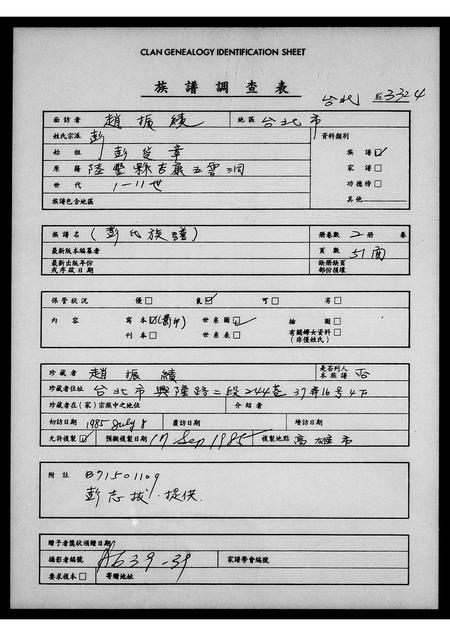 CLAN GENEALOGY IDENTIFICATION SHEET
族譜調查表
台北 3324
面訪者 趙振績 地區 台北市
姓氏宗派 彭 資料類別
始祖 彭 章 族譜☑
原籍 陸豐縣吉康五雲洞 家譜☐
世代 1-11世 功德榜☐
族譜包含地區 其他
族譜名 (彭氏族譜) 冊卷數 2 冊 卷
最新版本編纂者 頁數 51面
最新出版年份或序跋日期 缺冊缺頁部份損壞
保管狀況 優☐ 良☑ 可☐ 劣☐
內容 寫本☑(影印) 世系圖☑ 繪圖☐
刊本☐ 世系表☐ 有關婦女資料☐(非僅姓氏)
珍藏者 趙振績 是否列入本族譜 否
珍藏者住址 台北市興隆路二段244巷37弄16号4下
珍藏者在(家)宗族中之地位 介紹者
初訪日期 1985 July 8 覆訪日期 續訪日期
允許複製☑ 預擬複製日期 17 Sep 1985 複製地點 高雄市
附註 B71501109
彭志 提供
贈予者獎狀頒贈日期
攝影者編號 A639-39 家譜學會編號
要求複本☐ 寄贈地址